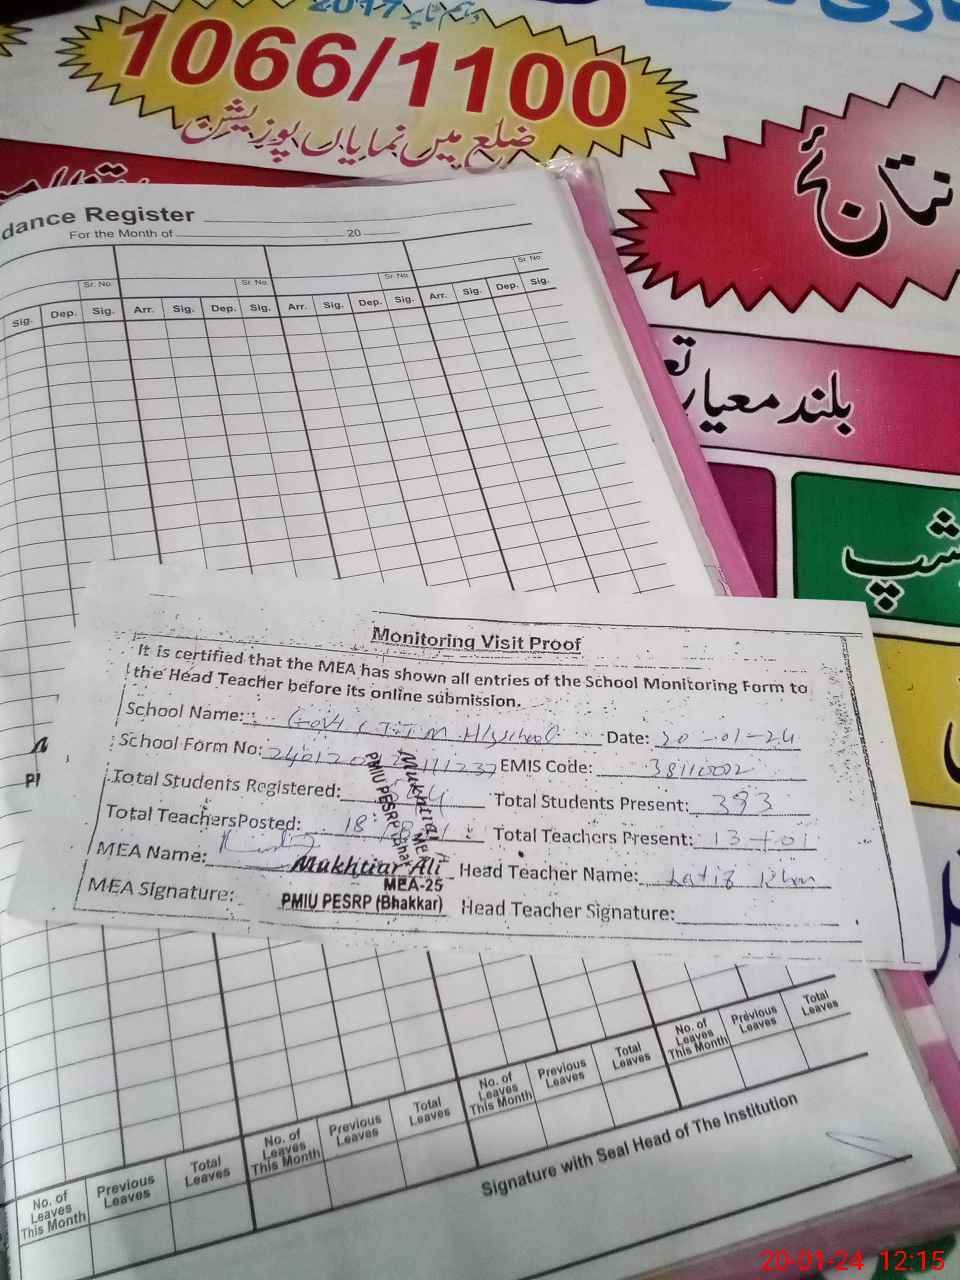 دہم ٹاپر 2017
1066/1100
ضلع میں نمایاں پوزیشن
نتائج
بلند معیار
dance Register
For the Month of 20
Sr. No. Sr. No. Sr. No. Sr. No.
Sig. Dep. Sig. Arr. Sig. Dep. Sig. Arr. Sig. Dep. Sig. Arr. Sig. Dep. Sig.
Monitoring Visit Proof
It is certified that the MEA has shown all entries of the School Monitoring Form to
the Head Teacher before its online submission.
School Name: Date: 20-01-24
School Form No: EMIS Code: 38110002
Total Students Registered: Total Students Present: 393
Total TeachersPosted: 18 Total Teachers Present: 13+01
MEA Name: Mukhtiar Ali Head Teacher Name: Latif Khan
MEA-25
MEA Signature: PMIU PESRP (Bhakkar) Head Teacher Signature:
Mukhtiar
PMIU PESRP
No. of Leaves This Month Previous Leaves Total Leaves No. of Leaves This Month Previous Leaves Total Leaves No. of Leaves This Month Previous Leaves Total Leaves No. of Leaves This Month Previous Leaves Total Leaves
Signature with Seal Head of The Institution
20-01-24 12:15